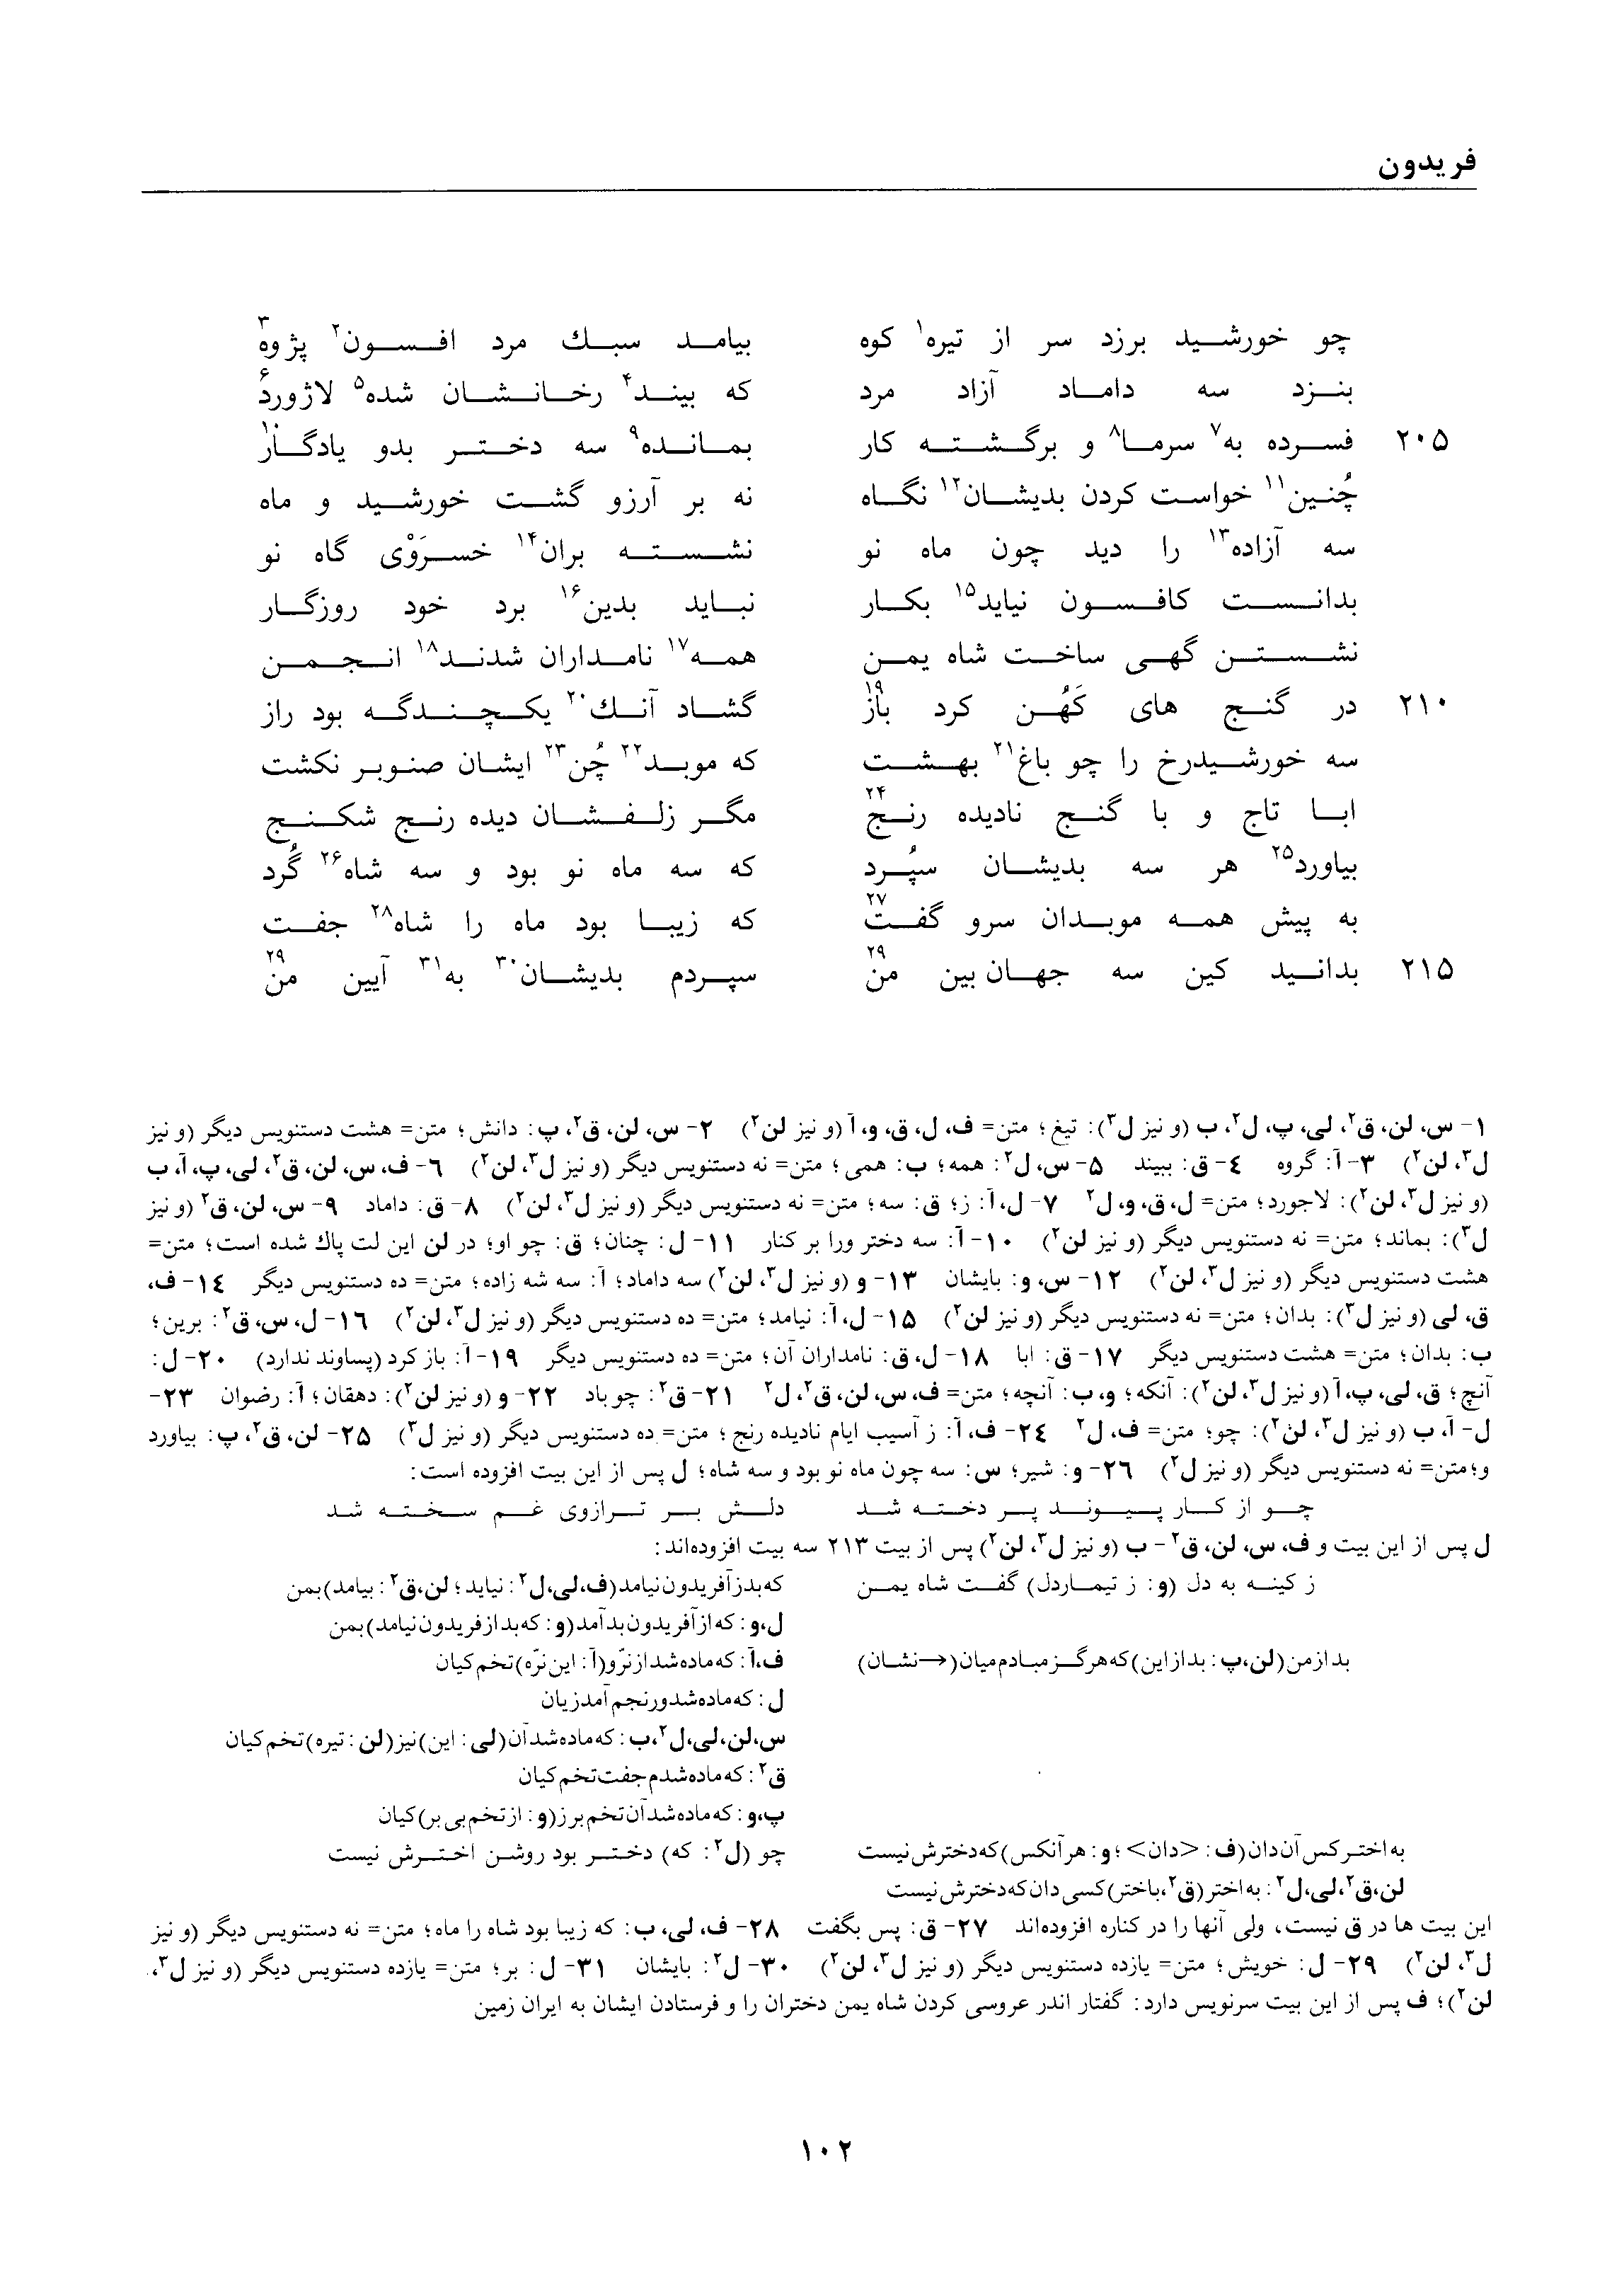 فریدون
چو خورشید برزد سر از تیره¹ کوه بیامد سبك مرد افسون² پژوه³
بنزد سه داماد آزاد مرد که بیند⁴ رخانشان شده⁵ لاژورد⁶
۲۰۵ فسرده به⁷ سرما⁸ و برگشته کار بمانده⁹ سه دختر بدو یادگار¹⁰
چُنین¹¹ خواست کردن بدیشان¹² نگاه نه بر آرزو گشت خورشید و ماه
سه آزاده¹³ را دید چون ماه نو نشسته بران¹⁴ خسرَوْی گاه نو
بدانست کافسون نیاید¹⁵ بکار نباید بدین¹⁶ برد خود روزگار
نشستن گهی ساخت شاه یمن همه¹⁷ نامداران شدند¹⁸ انجمن
۲۱۰ در گنج های کَهُن کرد باز¹⁹ گشاد آنك²⁰ یکچندگه بود راز
سه خورشیدرخ را چو باغ²¹ بهشت که موبد²² چُن²³ ایشان صنوبر نکشت
ابا تاج و با گنج نادیده رنج²⁴ مگر زلفشان دیده رنج شکنج
بیاورد²⁵ هر سه بدیشان سپُرد که سه ماه نو بود و سه شاه²⁶ گُرد
به پیش همه موبدان سرو گفت²⁷ که زیبا بود ماه را شاه²⁸ جفت
۲۱۵ بدانید کین سه جهان بین من²⁹ سپردم بدیشان³⁰ به³¹ آیین من²⁹
۱- س، لن، ق²، لی، پ، ل²، ب (و نیز ل³): تیغ؛ متن= ف، ل، ق، و، آ (و نیز لن²) ۲- س، لن، ق²، پ: دانش؛ متن= هشت دستنویس دیگر (و نیز
ل³، لن²) ۳- آ: گروه ۴- ق: ببیند ۵- س، ل²: همه؛ ب: همی؛ متن= نه دستنویس دیگر (و نیز ل³، لن²) ۶- ف، س، لن، ق²، لی، پ، آ، ب
(و نیز ل³، لن²): لاجورد؛ متن= ل، ق، و، ل² ۷- ل، آ: ز؛ ق: سه؛ متن= نه دستنویس دیگر (و نیز ل³، لن²) ۸- ق: داماد ۹- س، لن، ق² (و نیز
ل³): بماند؛ متن= نه دستنویس دیگر (و نیز لن²) ۱۰- آ: سه دختر ورا بر کنار ۱۱- ل: چنان؛ ق: چو او؛ در لن این لت پاك شده است؛ متن=
هشت دستنویس دیگر (و نیز ل³، لن²) ۱۲- س، و: بایشان ۱۳- و (و نیز ل³، لن²) سه داماد؛ آ: سه شه زاده؛ متن= ده دستنویس دیگر ۱۴- ف،
ق، لی (و نیز ل³): بدان؛ متن= نه دستنویس دیگر (و نیز لن²) ۱۵- ل، آ: نیامد؛ متن= ده دستنویس دیگر (و نیز ل³، لن²) ۱۶- ل، س، ق²: برین؛
ب: بدان؛ متن= هشت دستنویس دیگر ۱۷- ق: ابا ۱۸- ل، ق: نامداران آن؛ متن= ده دستنویس دیگر ۱۹- آ: باز کرد (پساوند ندارد) ۲۰- ل:
آنچ؛ ق، لی، پ، آ (و نیز ل³، لن²): آنکه؛ و، ب: آنچه؛ متن= ف، س، لن، ق²، ل² ۲۱- ق²: چو باد ۲۲- و (و نیز لن²): دهقان؛ آ: رضوان ۲۳-
ل- آ، ب (و نیز ل³، لن²): چو؛ متن= ف، ل² ۲۴- ف، آ: ز آسیب ایام نادیده رنج؛ متن= ده دستنویس دیگر (و نیز ل³) ۲۵- لن، ق²، پ: بیاورد
و؛ متن= نه دستنویس دیگر (و نیز ل³) ۲۶- و: شیر؛ س: سه چون ماه نو بود و سه شاه؛ ل پس از این بیت افزوده است:
چو از کار پیوند پر دخته شد دلش بر ترازوی غم سخته شد
ل پس از این بیت و ف، س، لن، ق² - ب (و نیز ل³، لن²) پس از بیت ۲۱۳ سه بیت افزوده‌اند:
ز کینه به دل (و: ز تیماردل) گفت شاه یمن که بد ز آفریدون نیامد (ف، لی، ل²: نیاید؛ لن، ق²: بیامد) بمن
ل، و: که از آفریدون بد آمد (و: که بد از فریدون نیامد) بمن
بد از من (لن، پ: بد از این) که هرگز مبادم میان (→ نشان) ف، آ: که ماده شد از نرّ و (آ: این نرّه) تخم کیان
ل: که ماده شد ور نجم آمد زیان
س، لن، لی، ل²، ب: که ماده شد آن (لی: این) نیز (لن: تیره) تخم کیان
ق²: که ماده شدم جفت تخم کیان
پ، و: که ماده شد آن تخم برز (و: از تخم بی بر) کیان
به اختر کس آن دان (ف: <دان>؛ و: هر آنکس) که دخترش نیست چو (ل²: که) دختر بود روشن اخترش نیست
لن، ق²، لی، ل²: به اختر (ق²، باختر) کسی دان که دخترش نیست
این بیت ها در ق نیست، ولی آنها را در کناره افزوده‌اند ۲۷- ق: پس بگفت ۲۸- ف، لی، ب: که زیبا بود شاه را ماه؛ متن= نه دستنویس دیگر (و نیز
ل³، لن²) ۲۹- ل: خویش؛ متن= یازده دستنویس دیگر (و نیز ل³، لن²) ۳۰- ل²: بایشان ۳۱- ل: بر؛ متن= یازده دستنویس دیگر (و نیز ل³،
لن²)؛ ف پس از این بیت سرنویس دارد: گفتار اندر عروسی کردن شاه یمن دختران را و فرستادن ایشان به ایران زمین
۱۰۲